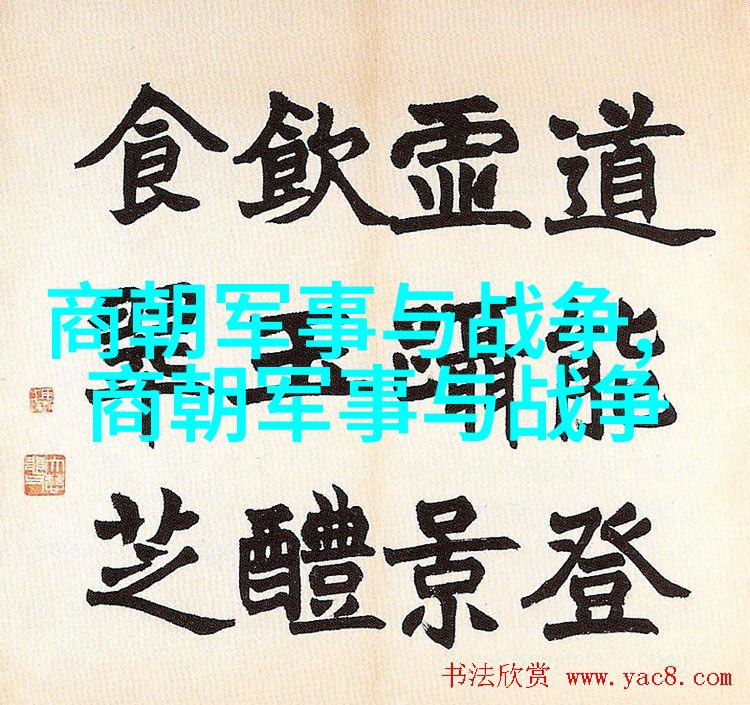 道能登
景
飲玉醴
食芝
商朝军事与战争,
商朝军事与战争
书法欣赏 www.yac8.com